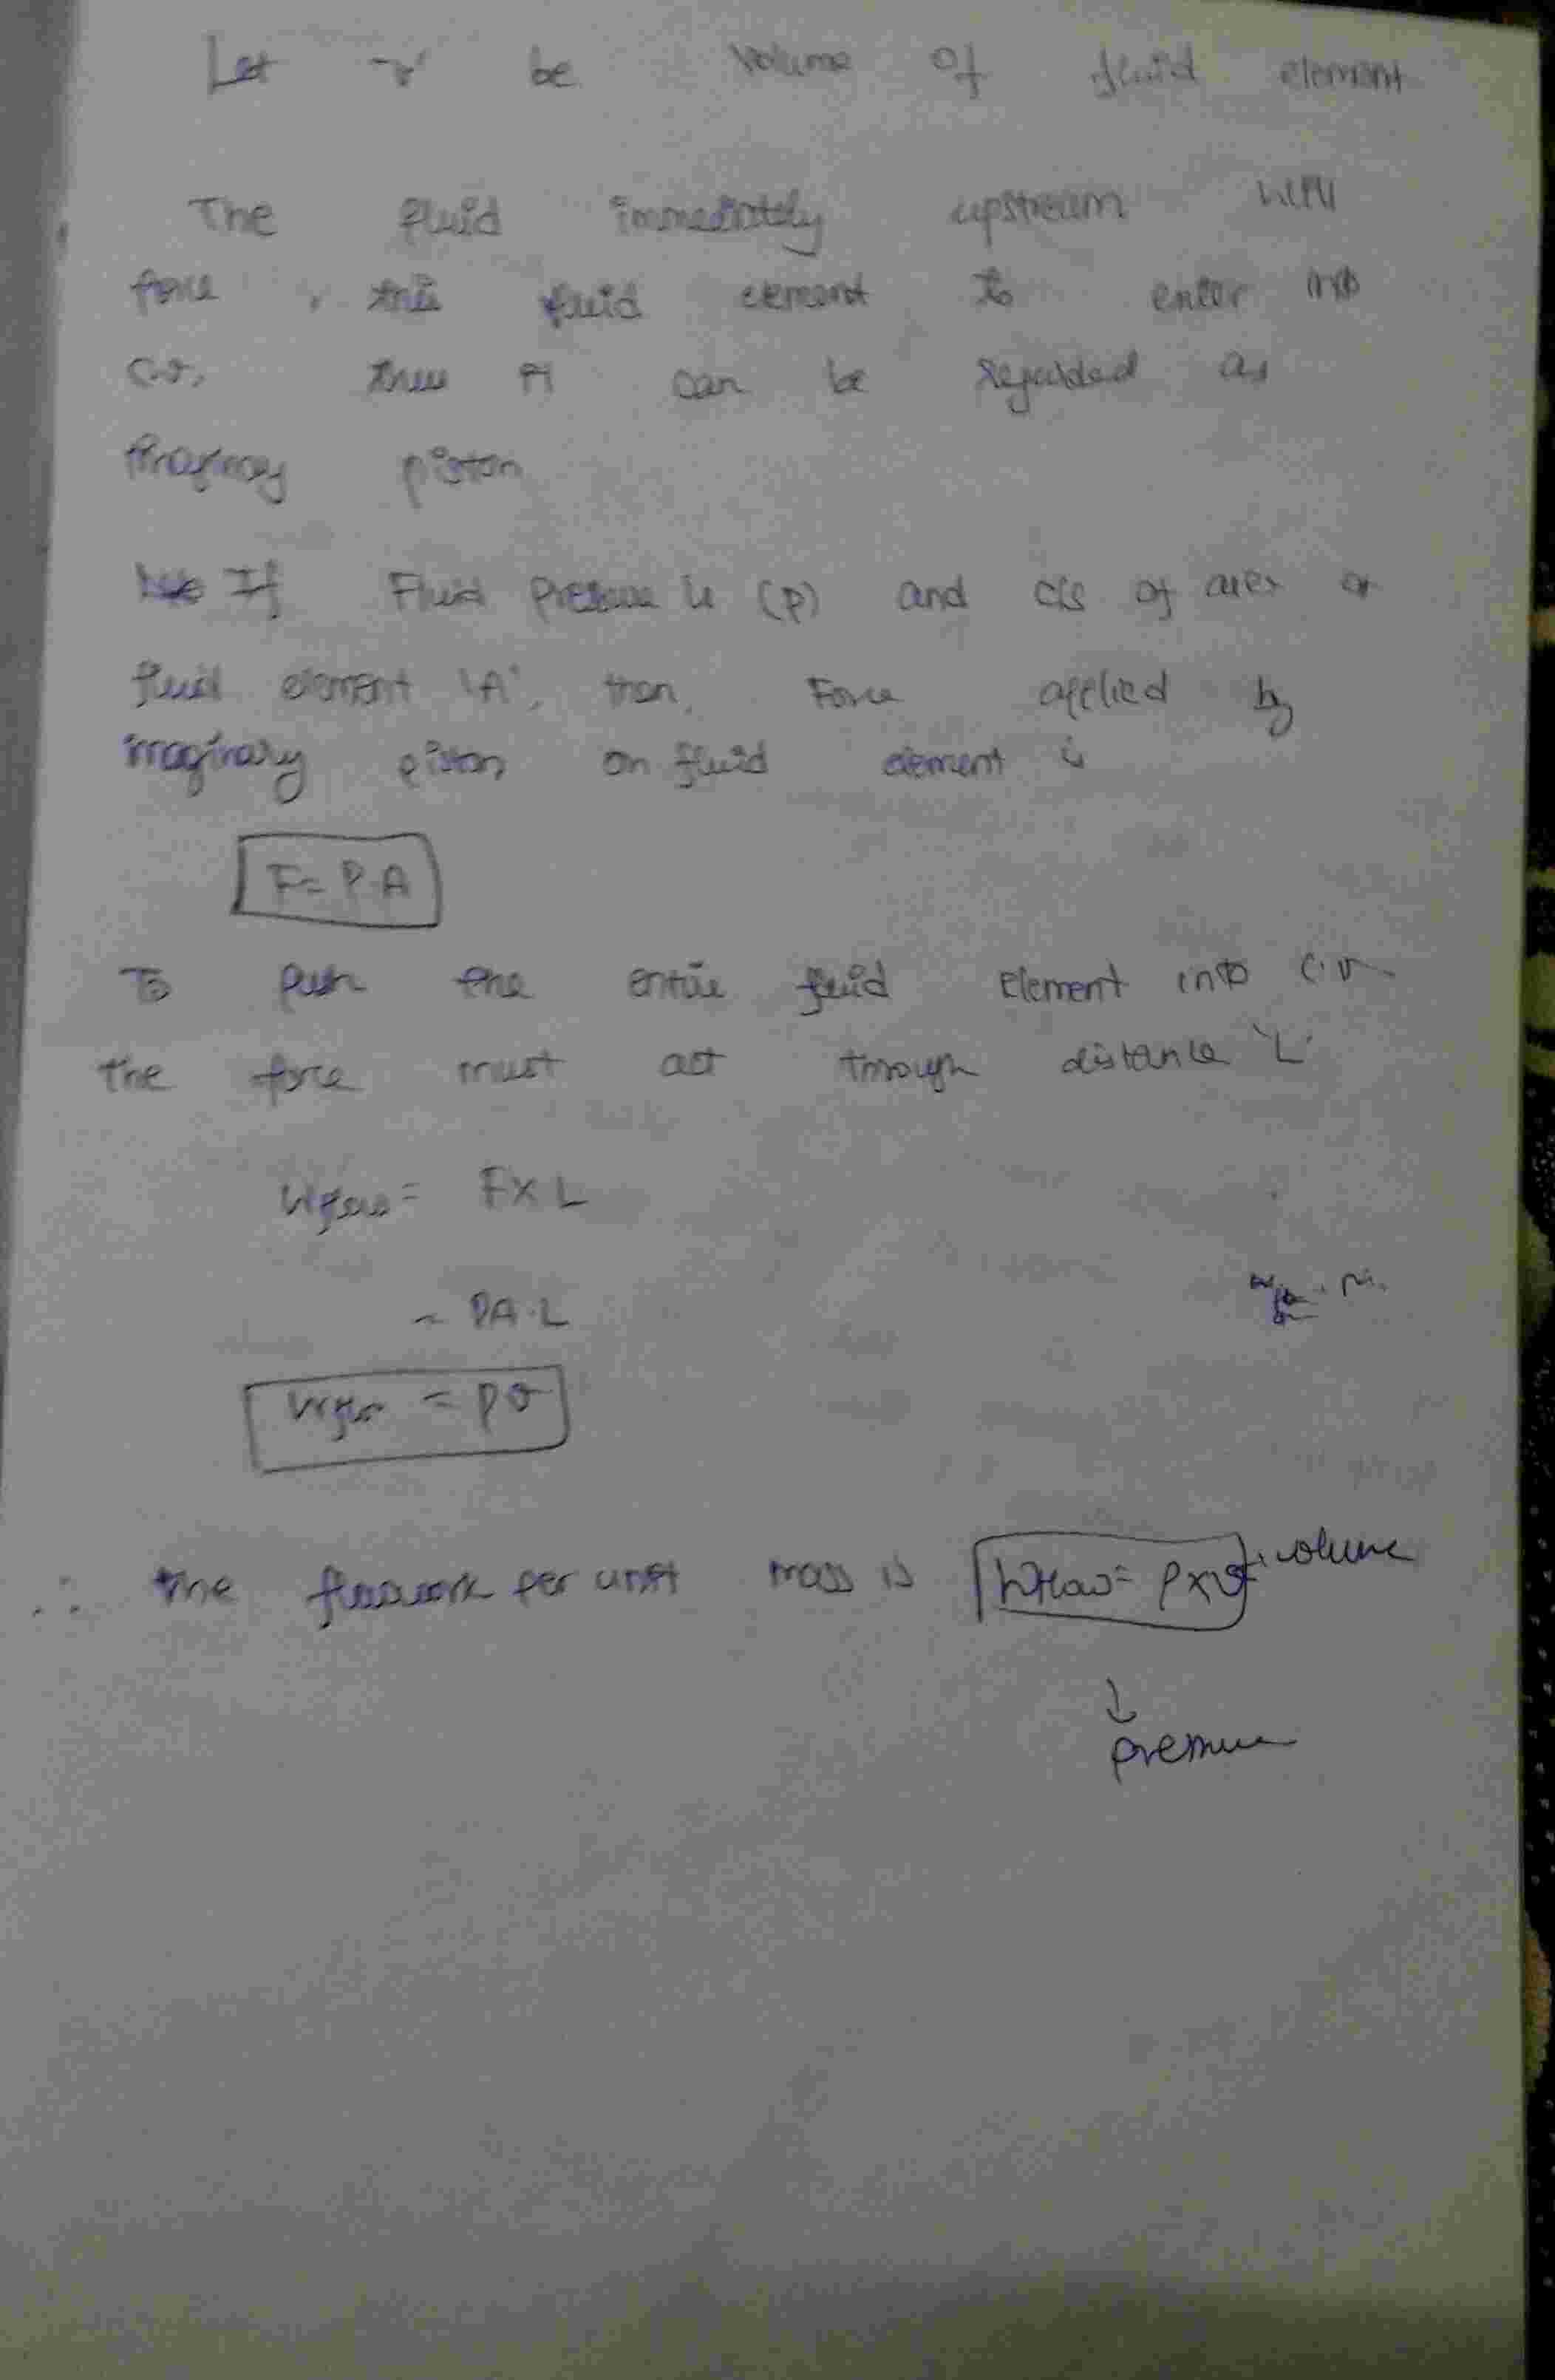 Let 'v' be volume of fluid element
The fluid immediately upstream will
force , this fluid element to enter into
C.V, thus it can be regarded as
imaginary piston
If Fluid Pressure is (P) and c/s of area of
fluid element 'A', then, Force applied by
imaginary piston, on fluid element is
F= P.A
To push the entire fluid element into C.V.
the force must act through distance 'L'
Wflow = F x L
= PA.L
Wflow = PV
∴ the flowwork per unit mass is Wflow = P x v volume
↓
pressure